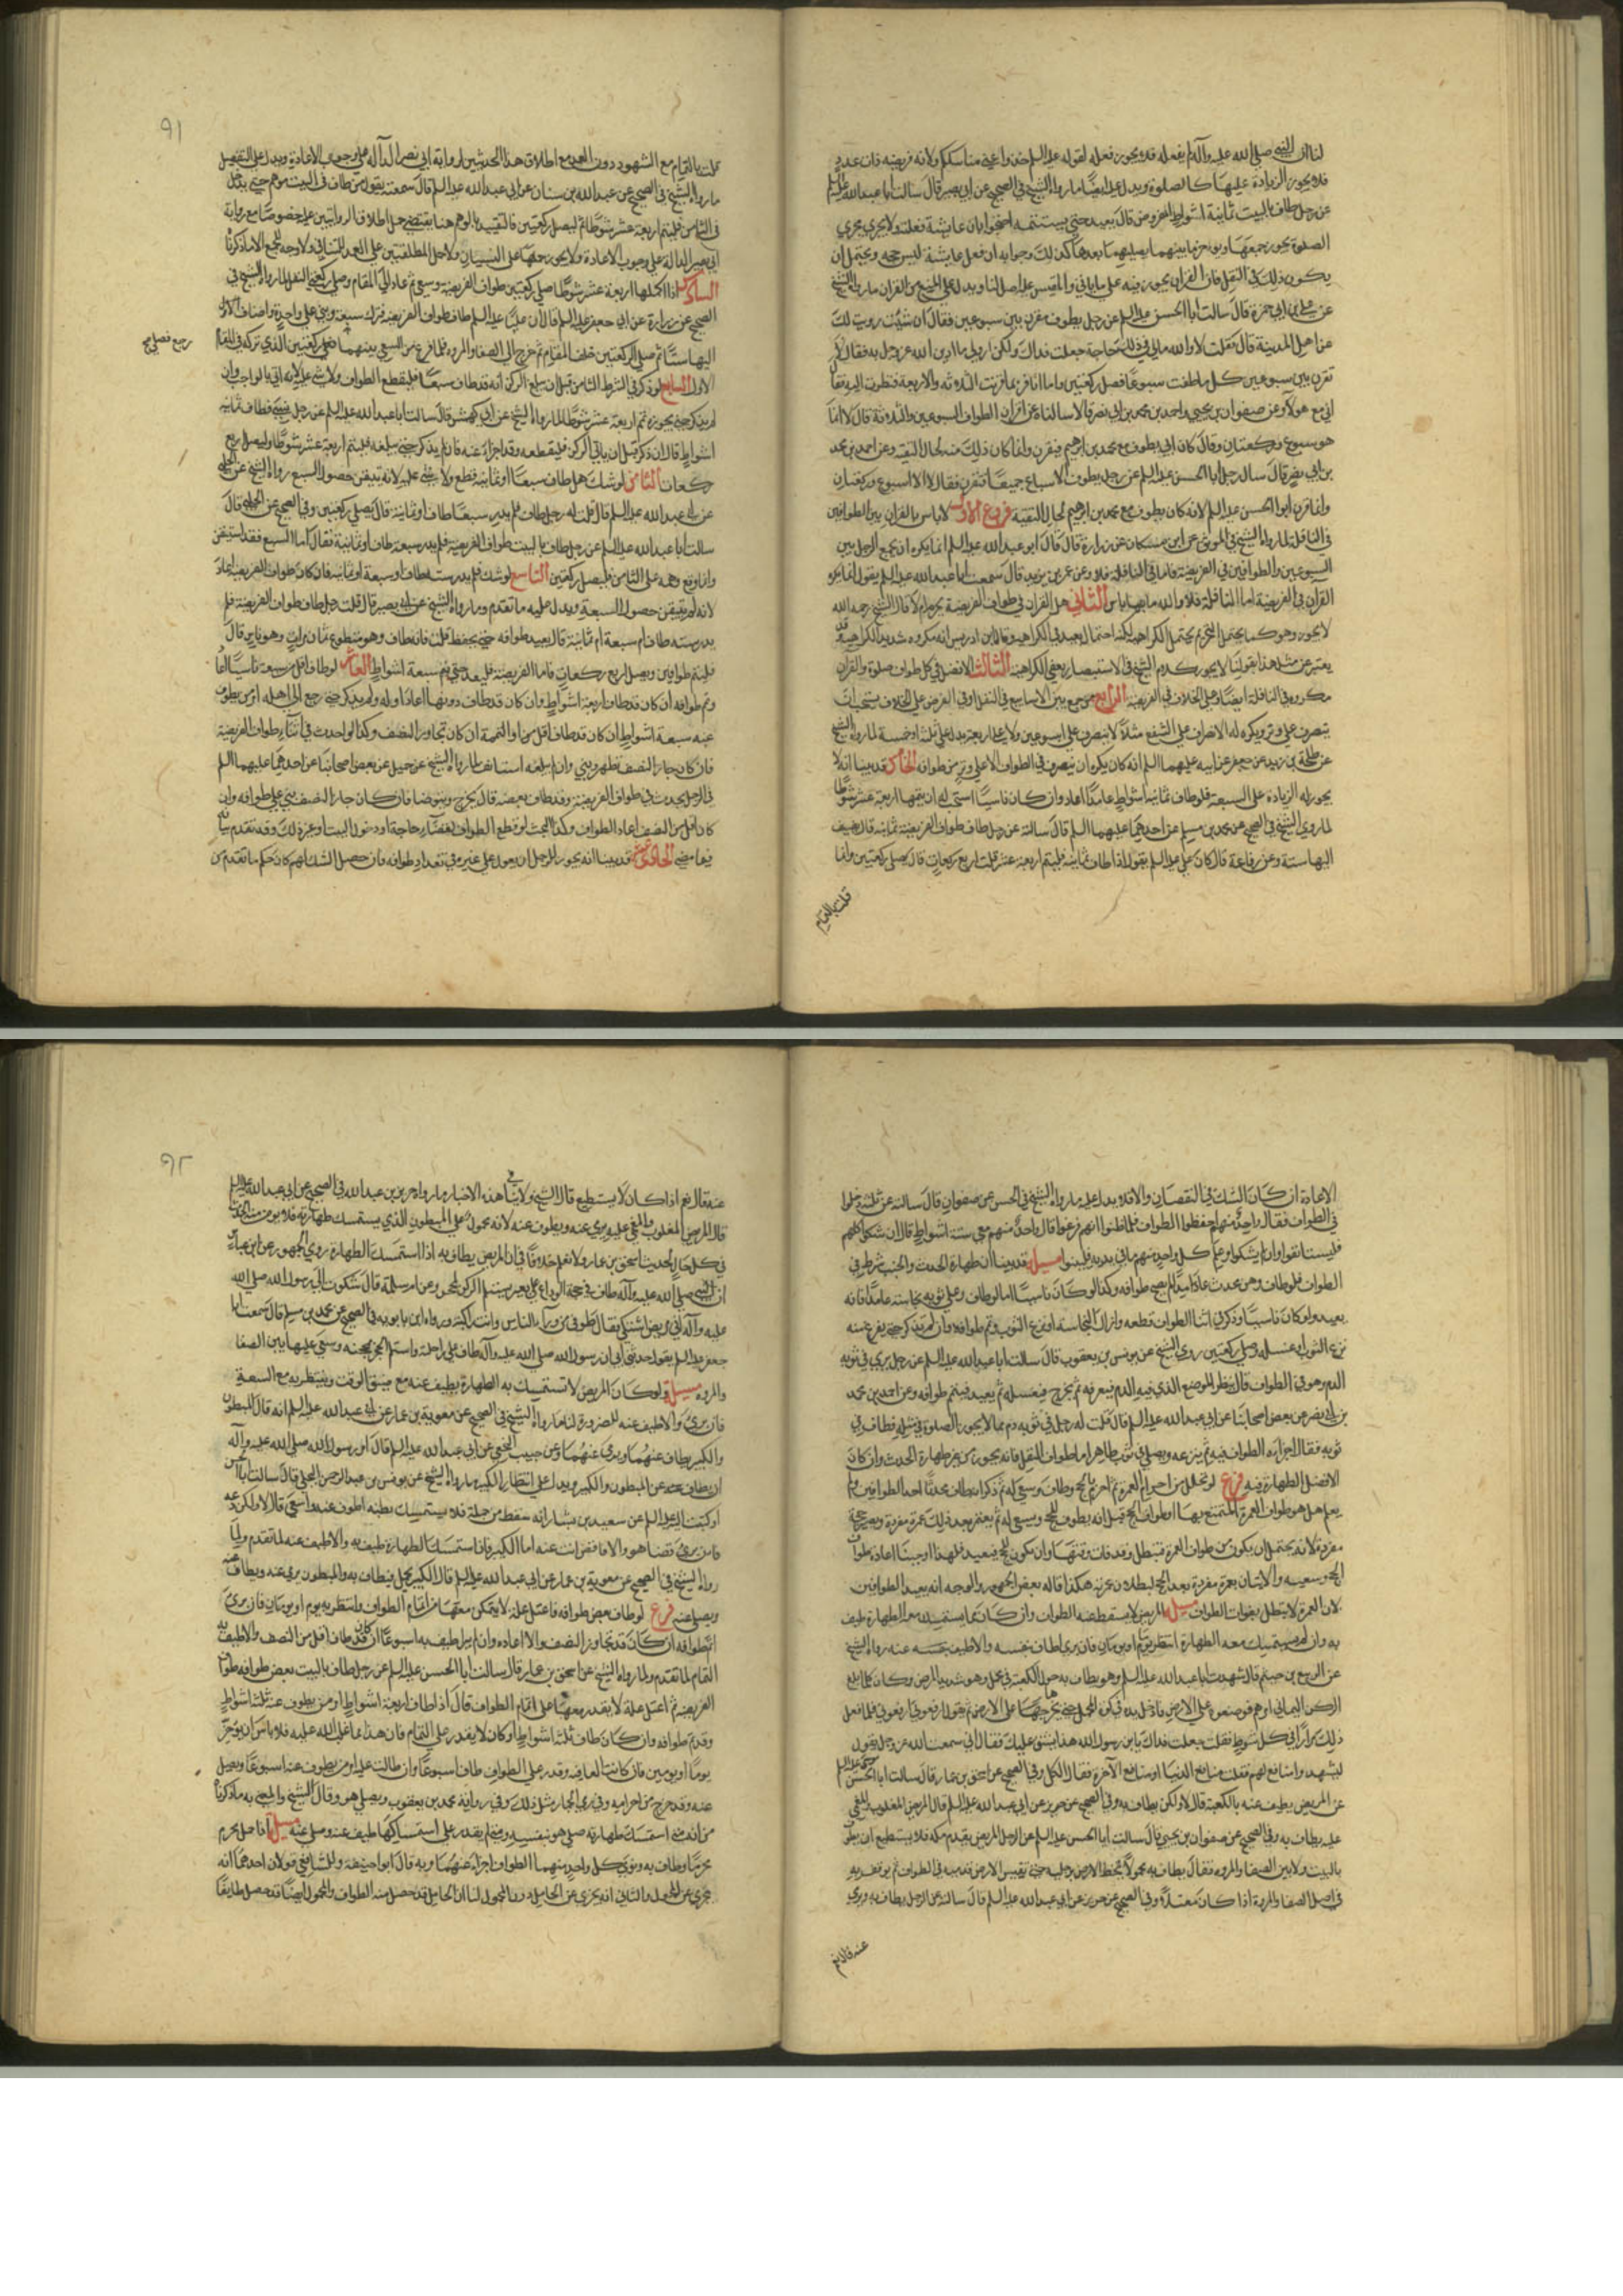 لنا ان النبي صلى الله عليه وآله لم يفعله فلا يجوز فعله لقوله عليه السلم خذوا عني مناسككم ولانه فريضة ذات عدد
فلا يجوز الزيادة عليها كالصلوة ويدل عليه ايضًا ما رواه الشيخ في الصحيح عن ابي بصير قال سالت ابا عبد الله عليه السلم
عن رجل طاف بالبيت ثمانية اشواط المفروض قال يعيد حتى يستتمه احتجوا بان عايشة فعلته ولا يجري مجرى
الصلوة يجوز جمعها ويؤخر ما بينهما يصليهما بعدها كذلك وجوابه ان فعل عايشة ليس حجة ويحتمل ان
يكون ذلك في النفل فان القران يجوز فيه على ما ياتي والمقيس عليه اصل لنا ويدل على المنع من القران ما رواه الشيخ
عن علي بن ابي حمزة قال سالت ابا الحسن عليه السلم عن رجل يطوف يقرن بين سبوعين فقال ان شئت رويت لك
عن اهل المدينة قال فقلت لا والله مالي في ذلك حاجة جعلت فداك ولكن ارو لي ما ادين الله عز وجل به فقال لا
تقرن بين سبوعين كل ما طفت سبوعًا فصل ركعتين واما انا فربما قرنت الثلاثة والاربعة فنظرت اليه فقال
اني مع هؤلاء وعن صفوان بن يحيى واحمد بن محمد بن ابي نصر قالا سالناه عن قران الطواف السبوعين والثلاثة قال لا انما
هو سبوع وركعتان وقال كان ابي يطوف مع محمد بن ابراهيم فيقرن وانما كان ذلك منه لحال التقية وعن احمد بن محمد
بن ابي نصر قال سال رجل ابا الحسن عليه السلم عن رجل يطوف الاسباع جميعًا فيقرن فقال لا الا اسبوع وركعتان
وانما قرن ابو الحسن عليه السلم لانه كان يطوف مع محمد بن ابراهيم لحال التقية فروع الاول لا باس بالقران بين الطوافين
في النافلة لما رواه الشيخ في الموثق عن ابن مسكان عن زرارة قال قال ابو عبد الله عليه السلم انما يكره ان يجمع الرجل بين
السبوعين والطوافين في الفريضة فاما في النافلة فلا وعن عمر بن يزيد قال سمعت ابا عبد الله عليه السلم يقول انما يكره
القران في الفريضة اما النافلة فلا والله ما بها باس الثاني هل القران في طواف الفريضة يحرم ام لا قال الشيخ رحمه الله
لا يجوز وهو كما يحتمل التحريم يحتمل الكراهية لكنه احتمال بعيد في الكراهية وقال ابن ادريس انه مكروه شديد الكراهية وقد
يعتبر عن مثل هذا بقولنا لا يجوز وكلام الشيخ في الاستبصار يعطي الكراهية الثالث الافضل في كل طواف صلوة والقران
مكروه في النافلة ايضًا وعلى الخلاف في الفريضة الرابع من جمع بين الاسابيع في النفل او في الفرض على الخلاف يستحب ان
ينصرف على وتر ويكره له الانصراف على الشفع مثلا لا ينصرف على اسبوعين ولا على اربعة بل على ثلاثة او خمسة لما رواه الشيخ
عن طلحة بن زيد عن جعفر عن ابيه عليهما السلم انه كان يكره ان ينصرف في الطواف الا على وتر من طوافه الخامس قد بينا انه لا
يجوز له الزيادة على السبعة فلو طاف ثمانية اشواط عامدًا اعاد وان كان ناسيًا استحب له ان يتمها اربعة عشر شوطًا
لما روى الشيخ في الصحيح عن محمد بن مسلم عن احدهما عليهما السلم قال سالته عن رجل طاف طواف الفريضة ثمانية قال يضيف
اليها ستة وعن رفاعة قال كان علي عليه السلم يقول اذا طاف ثمانية فليتم اربعة عشر قلت اربع ركعات قال يصلي ركعتين وانما
قلت بالقيام
٩١
قلت بالقيام مع الشهود دون العمد مع اطلاق هذا الحديثين لرواية ابي نصر الدالة على وجوب الاعادة ويدل على التفصيل
ما رواه الشيخ في الصحيح عن عبد الله بن سنان عن ابي عبد الله عليه السلم قال سمعته يقول من طاف في البيت فوهم حتى يدخل
في الثامن فليتم اربعة عشر شوطًا ثم ليصل ركعتين فالتقييد بالوهم هنا يقتضي حمل اطلاق الروايتين عليه خصوصًا مع رواية
ابي بصير الدالة على وجوب الاعادة ولا يجوز حملها على النسيان ولا حمل المطلقتين على العمد للتنافي ولا وجه للجمع الا ما ذكرناه
السادس اذا اكملها اربعة عشر شوطًا صلى ركعتين طواف الفريضة وسعى ثم عاد الى المقام وصلى ركعتي النفل لما رواه الشيخ في
الصحيح عن زرارة عن ابي جعفر عليه السلم قال ان عليًا عليه السلم طاف طواف الفريضة فترك سبعة وبنى على واحدة واضاف
اليها ستًا ثم صلى الركعتين خلف المقام ثم خرج الى الصفا والمروة فلما فرغ من السعي بينهما فصلى ركعتين الذي تركه في المقام
الاول السابع لو ذكر في الشوط الثامن قبل ان يبلغ الركن انه قد طاف سبعًا فليقطع الطواف ولا شيء عليه لانه اتى بالواجب وان
لم يذكر حتى يجوزه تم اربعة عشر شوطًا لما رواه الشيخ عن ابي كهمش قال سالت ابا عبد الله عليه السلم عن رجل نسي فطاف ثمانية
اشواط قال ان ذكر قبل ان ياتي الركن فليقطعه وقد اجزأ عنه فان لم يذكر حتى يبلغه فليتم اربعة عشر شوطًا وليصل اربع
ركعات الثامن لو شك هل طاف سبعًا او ثمانية قطع ولا شيء عليه لانه تيقن حصول السبع رواه الشيخ عن الحلبي
عن ابي عبد الله عليه السلم قال قلت له رجل طاف فلم يدر سبعًا طاف او ثمانية قال يصلي ركعتين وفي الصحيح عن الحلبي قال
سالت ابا عبد الله عليه السلم عن رجل طاف بالبيت طواف الفريضة فلم يدر سبعة طاف او ثمانية فقال اما السبع فقد استيقن
وانما وقع وهمه على الثامن فليصل ركعتين التاسع لو شك فلم يدر ستة طاف او سبعة او ثمانية فان كان طواف الفريضة اعاد
لانه لم يتيقن حصول السبعة ويدل عليه ما تقدم وما رواه الشيخ عن ابي بصير قال قلت رجل طاف طواف الفريضة فلم
يدر ستة طاف ام سبعة ام ثمانية قال يعيد طوافه حتى يحفظ قلت فانه طاف وهو متطوع ثمان مرات وهو ناس قال
فليتم طوافين ويصل اربع ركعات فاما الفريضة فليعد حتى يتم سبعة اشواط العاشر لو طاف اقل من سبعة ناسيًا
وتم طوافه ان كان قد طاف اربعة اشواط وان كان قد طاف دونها اعاد اوله ولو لم يذكر حتى رجع الى اهله امر من يطوف
عنه سبعة اشواط ان كان قد طاف اقل من او التتمة ان كان تجاوز النصف وكذا لو احدث في اثناء طواف الفريضة
فان كان جاز النصف تطهر وبنى وان لم يبلغه استانف لما رواه الشيخ عن جميل عن بعض اصحابنا عن احدهما عليهما السلم
في الرجل يحدث في طواف الفريضة وقد طاف بعضه قال يخرج ويتوضا فان كان جاز النصف بنى على طوافه وان
كان اقل من النصف اعاد الطواف وكذا البحث لو قطع الطواف لقضاء حاجة او دخول البيت او غير ذلك وقد تقدم بيانه
فيما مضى الحادي عشر قد بينا انه يجوز للرجل ان يعول على غيره في تعداد طوافه فان حصل الشك لهم كان حكم ما تقدم من
الاعادة ان كان الشك في النقصان والا فلا يدل عليه ما رواه الشيخ في الحسن عن صفوان قال سالته عن ثلاثة دخلوا
في الطواف فقال واحد منهم احفظوا الطواف فلما ظنوا انهم فرغوا قال واحد منهم معي ستة اشواط قال ان شكوا كلهم
فليستانفوا وان لم يشكوا وعلم كل واحد منهم ما في يديه فليبنوا مسئلة قد بينا ان طهارة الحدث والخبث شرط في
الطواف فلو طاف وهو محدث عامدًا لم يصح طوافه وكذا لو كان ناسيًا اما لو طاف وعلى ثوبه نجاسة عامدًا فانه
يعيد ولو كان ناسيًا وذكر في اثناء الطواف قطعه وازال النجاسة او نزع الثوب وتم طوافه وان لم يذكر حتى يفرغ منه
نزع الثوب او غسله وصلى ركعتين روى الشيخ عن يونس بن يعقوب قال سالت ابا عبد الله عليه السلم عن رجل يرى في ثوبه
الدم وهو في الطواف قال ينظر الموضع الذي فيه الدم فيعرفه ثم يخرج فيغسله ثم يعيد فيتم طوافه وعن احمد بن محمد
بن ابي نصر عن بعض اصحابنا عن ابي عبد الله عليه السلم قال قلت له رجل في ثوبه دم مما لا يجوز الصلوة في مثله فطاف في
ثوبه فقال اجزاه الطواف فيه ثم ينزعه ويصلي في ثوب طاهر اما طواف النفل فانه يجوز من غير طهارة الحدث وان كان
الافضل الطهارة فيه فرع لو تحلل من احرام العمرة ثم احرم بالحج وطاف وسعى له ثم ذكر انه طاف محدثًا احد الطوافين ولم
يعلم هل هو طواف العمرة المتمتع بها او طواف الحج قيل انه يطوف للحج ويسعى له ثم يعتمر بعد ذلك عمرة مفردة ويصير حجة
مفردة لانه يحتمل ان يكون من طواف العمرة فتبطل وقد فات وقتها وان يكون للحج فيعيد فلهذا اوجبنا اعادة طواف
الحج وسعيه والاتيان بعمرة مفردة بعد الحج لبطلان عمرته هكذا قاله بعض الجمهور والوجه انه يعيد الطوافين
لان العمرة لا تبطل بفوات الطواف مسئلة المريض لا يسقط عنه الطواف وان كان مما يستمسك معه الطهارة طيف
به وان لم يستمسك معه الطهارة انتظر يومًا او يومان فان برئ طاف بنفسه والا طيف عنه رواه الشيخ
عن الربيع بن خيثم قال شهدت ابا عبد الله عليه السلم وهو يطاف به حول الكعبة في محمل وهو شديد المرض وكان كلما بلغ
الركن اليماني امرهم فوضعوه على الارض فادخل يده في كوة المحمل حتى يجرها على الارض ثم يقول ارفعوني فلما فعل
ذلك مرارًا في كل شوط فقلت جعلت فداك يا بن رسول الله هذا يشق عليك فقال اني سمعت الله عز وجل يقول
ليشهدوا منافع لهم فقلت منافع الدنيا او منافع الآخرة فقال الكل وفي الصحيح عن اسحق بن عمار قال سالت ابا الحسن موسى عليه السلم
عن المريض يطاف عنه بالكعبة قال لا ولكن يطاف به وفي الصحيح عن حريز عن ابي عبد الله عليه السلم قال المريض المغلوب والمغمى
عليه يطاف به وفي الصحيح عن صفوان بن يحيى قال سالت ابا الحسن عليه السلم عن الرجل المريض يقدم مكة فلا يستطيع ان يطوف
بالبيت ولا بين الصفا والمروة فقال يطاف به محمولا يخط الارض برجليه حتى تمس الارض قدميه في الطواف ثم يوقف به
في اصل الصفا والمروة اذا كان معتلا وفي الصحيح عن حريز عن ابي عبد الله عليه السلم قال سالته عن الرجل يطاف به ويرمى
عنه قال نعم
٩٢
عنه قال نعم اذا كان لا يستطيع قال الشيخ ولا ينافي هذه الاخبار ما رواه حريز بن عبد الله في الصحيح عن ابي عبد الله عليه السلم
قال المريض المغلوب والمغمى عليه يرمى عنه ويطوف عنه لانه محمول على المبطون الذي
في كل حال لحديث اسحق بن عمار ولا نعلم خلافًا في ان المريض يطاف به اذا استمسك الطهارة روى الجمهور عن ابن عباس
ان النبي صلى الله عليه وآله طاف في حجة الوداع على بعير يستلم الركن بمحجن وعن ام سلمة قال شكوت الى رسول الله صلى الله
عليه وآله اني مريض اشتكي فقال طوفي من وراء الناس وانت راكبة ورواه ابن بابويه في الصحيح عن محمد بن مسلم قال سمعت ابا
جعفر عليه السلم يقول حدثني ابي ان رسول الله صلى الله عليه وآله طاف على راحلة واستلم الحجر بمحجنه وسعى عليها بين الصفا
والمروة مسئلة لو كان المريض لا تستمسك به الطهارة يطيف عنه مع ضيق الوقت وينتظر به مع السعة
فان برئ والا طيف عنه للضرورة لنا ما رواه الشيخ في الصحيح عن معوية بن عمار عن ابي عبد الله عليه السلم انه قال المبطون
والكبير يطاف عنهما ويرمى عنهما وعن حبيب الخثعمي عن ابي عبد الله عليه السلم قال امر رسول الله صلى الله عليه وآله
ان يطاف عن المبطون والكبير ويدل على انتظار الكبير ما رواه الشيخ عن يونس بن عبد الرحمن البجلي قال سالت ابا الحسن
او كتبت اليه عليه السلم عن سعيد بن يسار انه سقط من جمله فلا يستمسك بطنه اطوف عنه واسعى قال لا ولكن دعه
فان برئ قضا هو والا فاقض انت عنه اما الكبير فان استمسك الطهارة طيف به والا طيف عنه لما تقدم ولما
رواه الشيخ في الصحيح عن معوية بن عمار عن ابي عبد الله عليه السلم قال الكبير يحمل فيطاف به والمبطون يرمى عنه ويطاف عنه
ويصلى عنه فرع لو طاف بعض طوافه فاعتل علة لا يتمكن معها من اتمام الطواف وانتظر به يوم او يومان فان برئ
اتم طوافه ان كان قد تجاوز النصف والا اعاده وان لم يبرا طيف به اسبوعًا ان كان قد طاف اقل من النصف والا طيف به
التمام لما تقدم ولما رواه الشيخ عن اسحق بن عمار قال سالت ابا الحسن عليه السلم عن رجل طاف بالبيت بعض طوافه طواف
الفريضة ثم اعتل علة لا يقدر معها على اتمام الطواف قال اذا طاف اربعة اشواط امر من يطوف عنه ثلاثة اشواط
وقد تم طوافه وان كان طاف ثلاثة اشواط وكان لا يقدر على التمام فان هذا مما غلب الله عليه فلا باس ان يؤخر
يومًا او يومين فان كانت العافية وقدر على الطواف طاف اسبوعًا وان طالت علته امر من يطوف عنه اسبوعًا ويصلي
عنه وقد خرج من احرامه وفي رمي الجمار مثل ذلك وفي رواية محمد بن يعقوب ويصلي هو وقال الشيخ والمعنى به ما ذكرناه
من انه متى استمسك طهارته صلى هو بنفسه ومتى لم يقدر على استمساكها طيف عنه وصلى عنه مسئلة اذا حمل محرم
محرمًا وطاف به ونوى كل واحد منهما الطواف اجزأ عنهما وبه قال ابو حنيفة وللشافعي قولان احدهما انه
يجزي عن المحمول والثاني انه يجزي عن الحامل دون المحمول لنا ان الحامل قد حصل منه الطواف والمحمول ايضًا قد حصل طايفًا